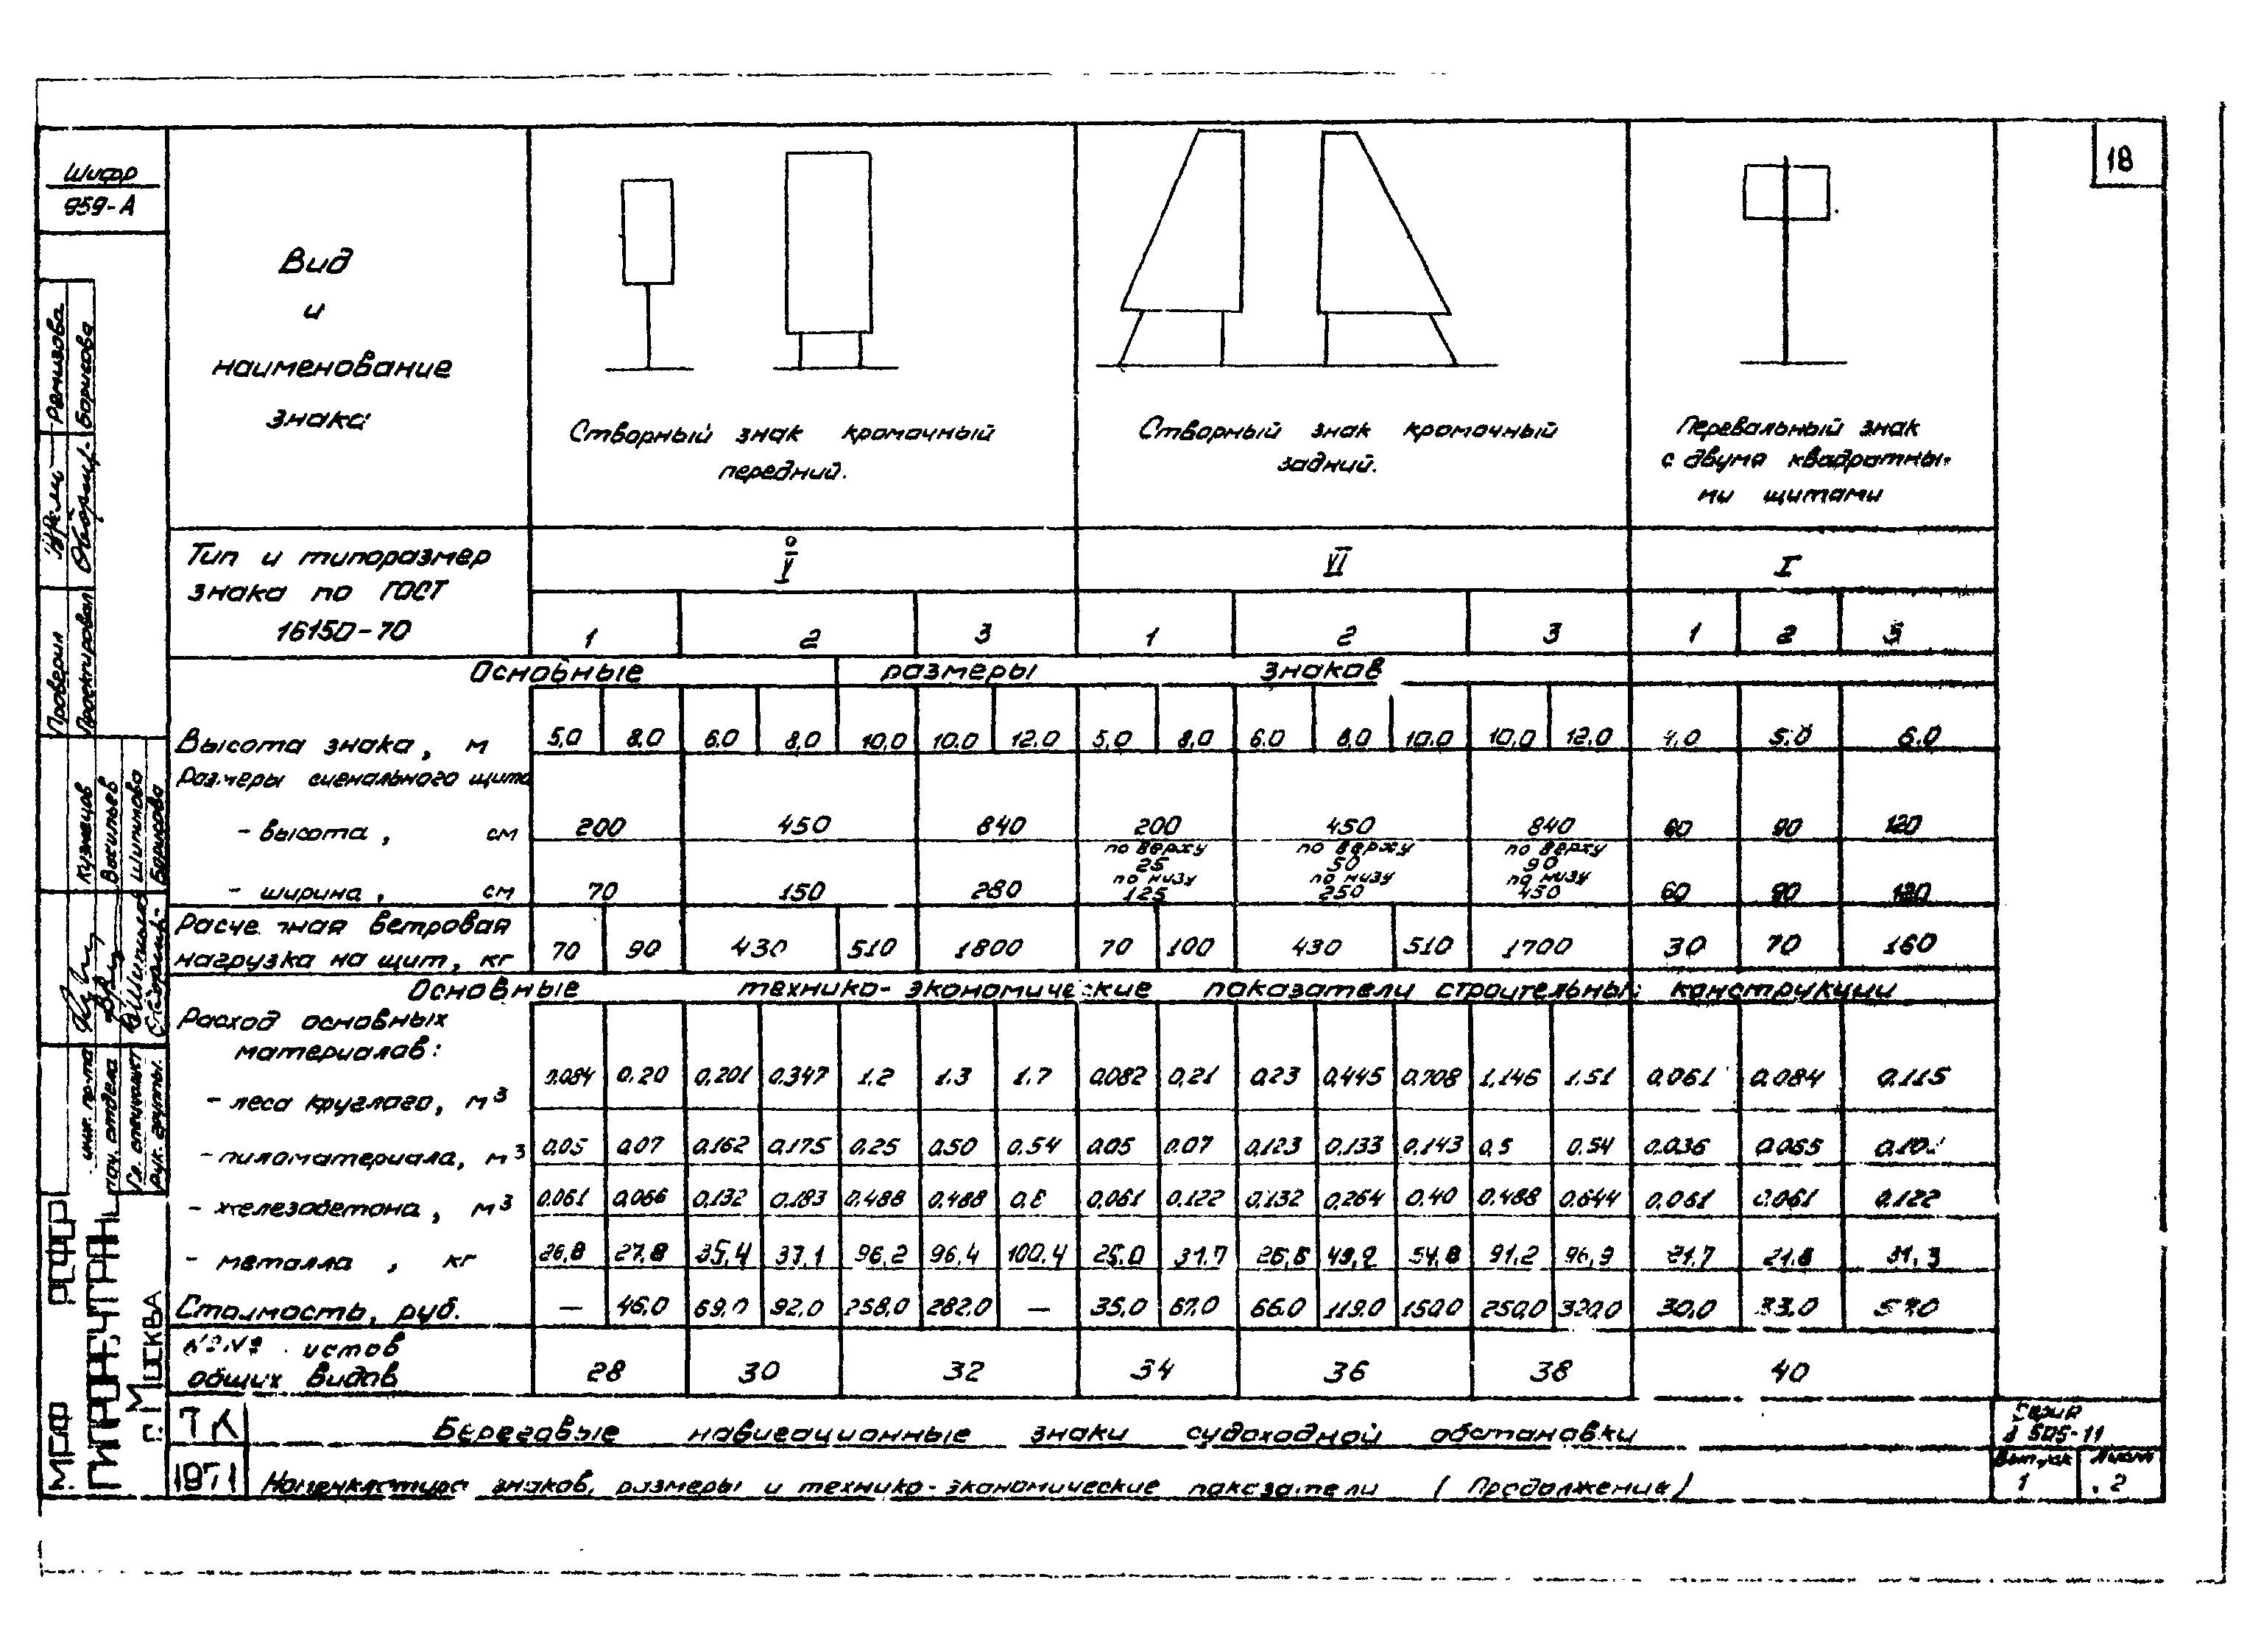 18
Шифр
959-А
Вид
и
наименование
знака
Створный знак кромочный
передний.
Створный знак кромочный
задний.
Перевальный знак
с двумя квадратны-
ми щитами
Тип и типоразмер
знака по ГОСТ
16150-70
V VI I
1 2 3 1 2 3 1 2 3
Основные размеры знаков
Высота знака, м 5,0 8,0 6,0 8,0 10,0 10,0 12,0 5,0 8,0 6,0 8,0 10,0 10,0 12,0 4,0 5,0 6,0
Размеры сигнального щита
- высота, см 200 450 840 200 450 840 60 90 120
по верху по верху по верху
25 50 90
по низу по низу по низу
- ширина, см 70 150 280 125 250 450 60 90 120
Расчетная ветровая
нагрузка на щит, кг 70 90 430 510 1800 70 100 430 510 1700 30 70 160
Основные технико-экономические показатели строительных конструкции
Расход основных
материалов:
- леса круглого, м³ 0.084 0,20 0,201 0.347 1.2 1.3 1.7 0,082 0,21 0,23 0,445 0,708 1,146 1.51 0,061 0,084 0,115
- пиломатериала, м³ 0,05 0,07 0,162 0,175 0,25 0,50 0.54 0,05 0.07 0,123 0,133 0,143 0,5 0.54 0.036 0,065
- железобетона, м³ 0,061 0,066 0,132 0,183 0,488 0,488 0,061 0,122 0,132 0,264 0,40 0,488 0,644 0,061 0,061 0,122
- металла, кг 26,8 27.8 35,4 37,1 96,2 96,4 100,4 25,0 31,7 49,2 54,8 91,2 96,9 21.7 21.8 31,3
Стоимость, руб. — 46,0 69,0 92,0 258,0 282,0 — 35,0 67,0 66,0 119,0 150,0 250,0 320,0 30,0 33,0
листов
общих видов 28 30 32 34 36 38 40
ТК
Береговые навигационные знаки судоходной обстановки
1971
Номенклатура знаков, размеры и технико-экономические показатели (Продолжение)
Серия
3.505-11
Выпуск Лист
1 2
Ремизова
Борисова
Проверил
Проектировал
Кузнецов
Васильев
Шипилова
Борисова
инж. по-та
нач. отдела
Гл. специалист
рук. группы.
МРФ РСФСР
ГИПРОРЕЧТРАНС
г. Москва